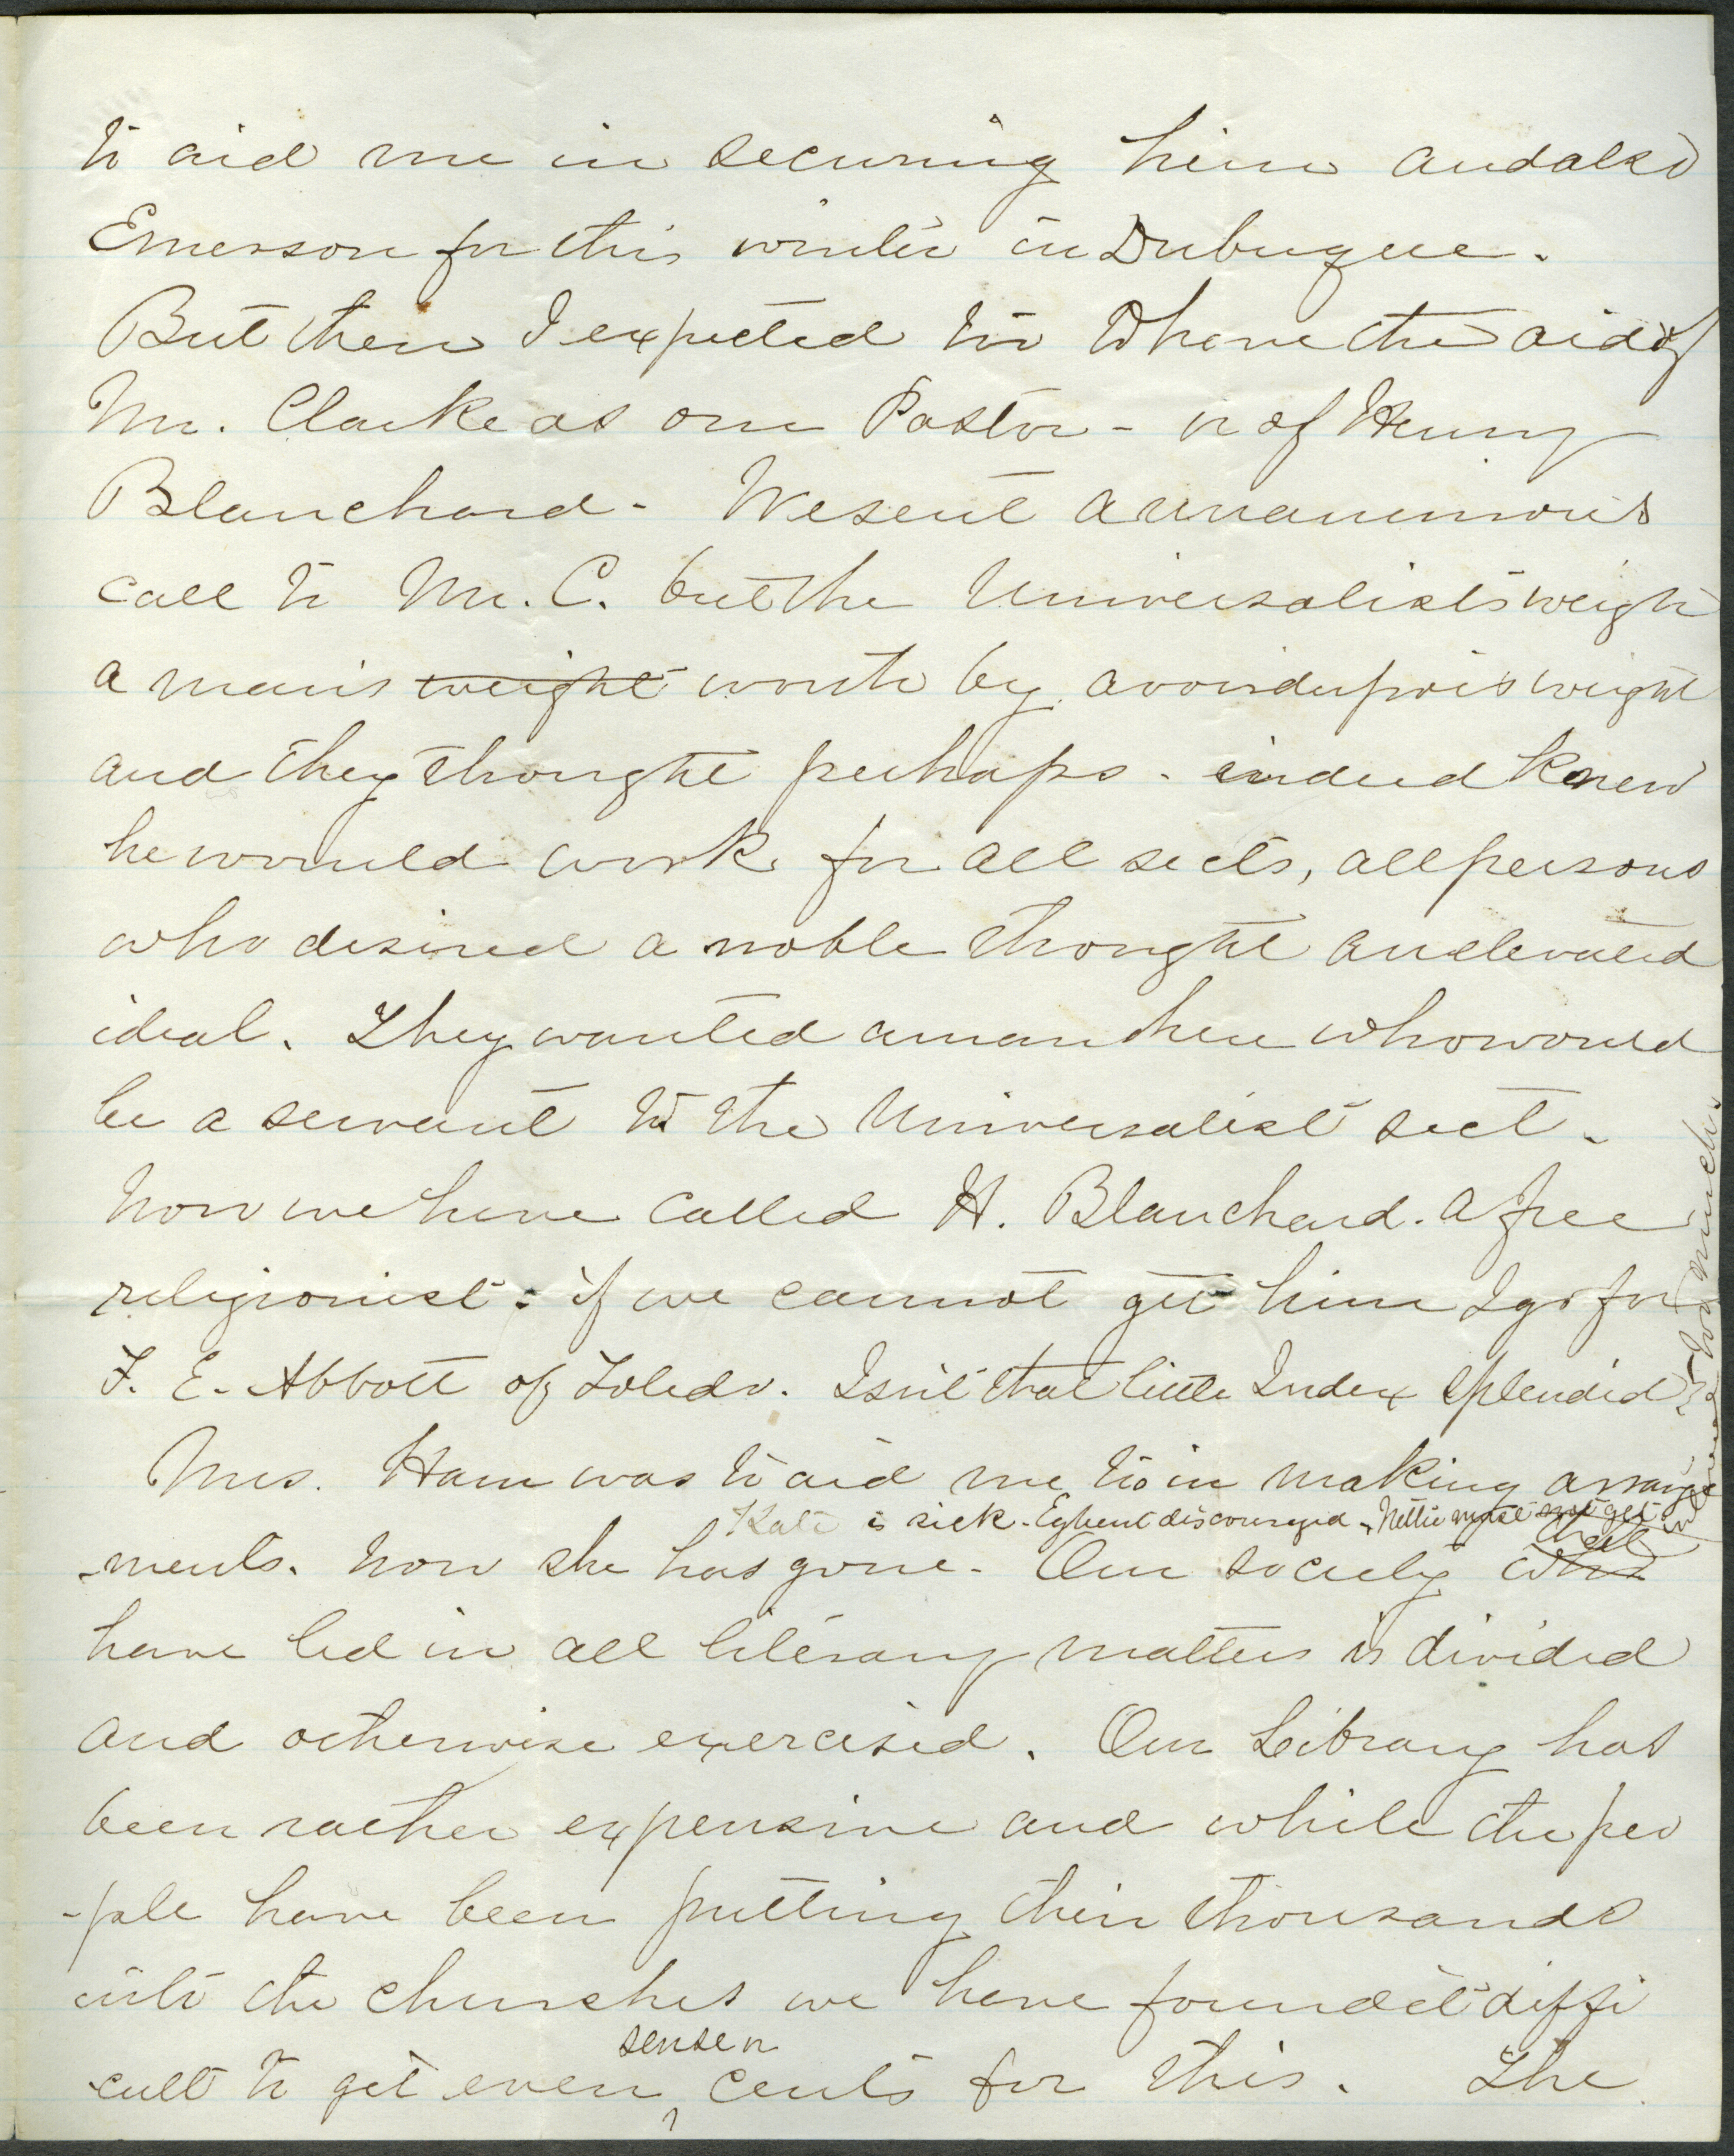 to aid me in securing him and also
Emerson for this winter in Dubuque.
But then I expected to have the aid of
Mr. Clarke as our Pastor - or of Henry
Blanchard - We sent a unanimous
call to Mr. C. but the Universalists weigh
a man's weight worth by avoirdupois weight
and they thought perhaps - indeed knew
he would work for all sects, all persons
who desired a noble thought an elevated
ideal. They wanted a man here who would
be a servant to the Universalist sect.
Now we have called H. Blanchard. a free
religionist; if we cannot get him I go for
F. E. Abbott of Toledo. Isn't that little Index splendid?
Mrs. Ham was to aid me too in making arrange
Kate is sick - Egbert discouraged - Nettie must not get in
-ments. Now she has gone. Our society who
have led in all literary matters is divided
and otherwise exercised. Our Library has
been rather expensive and while the peo
-ple have been putting their thousands
into the churches we have found it diffi
sense or
-cult to get even cents for this. The
too much